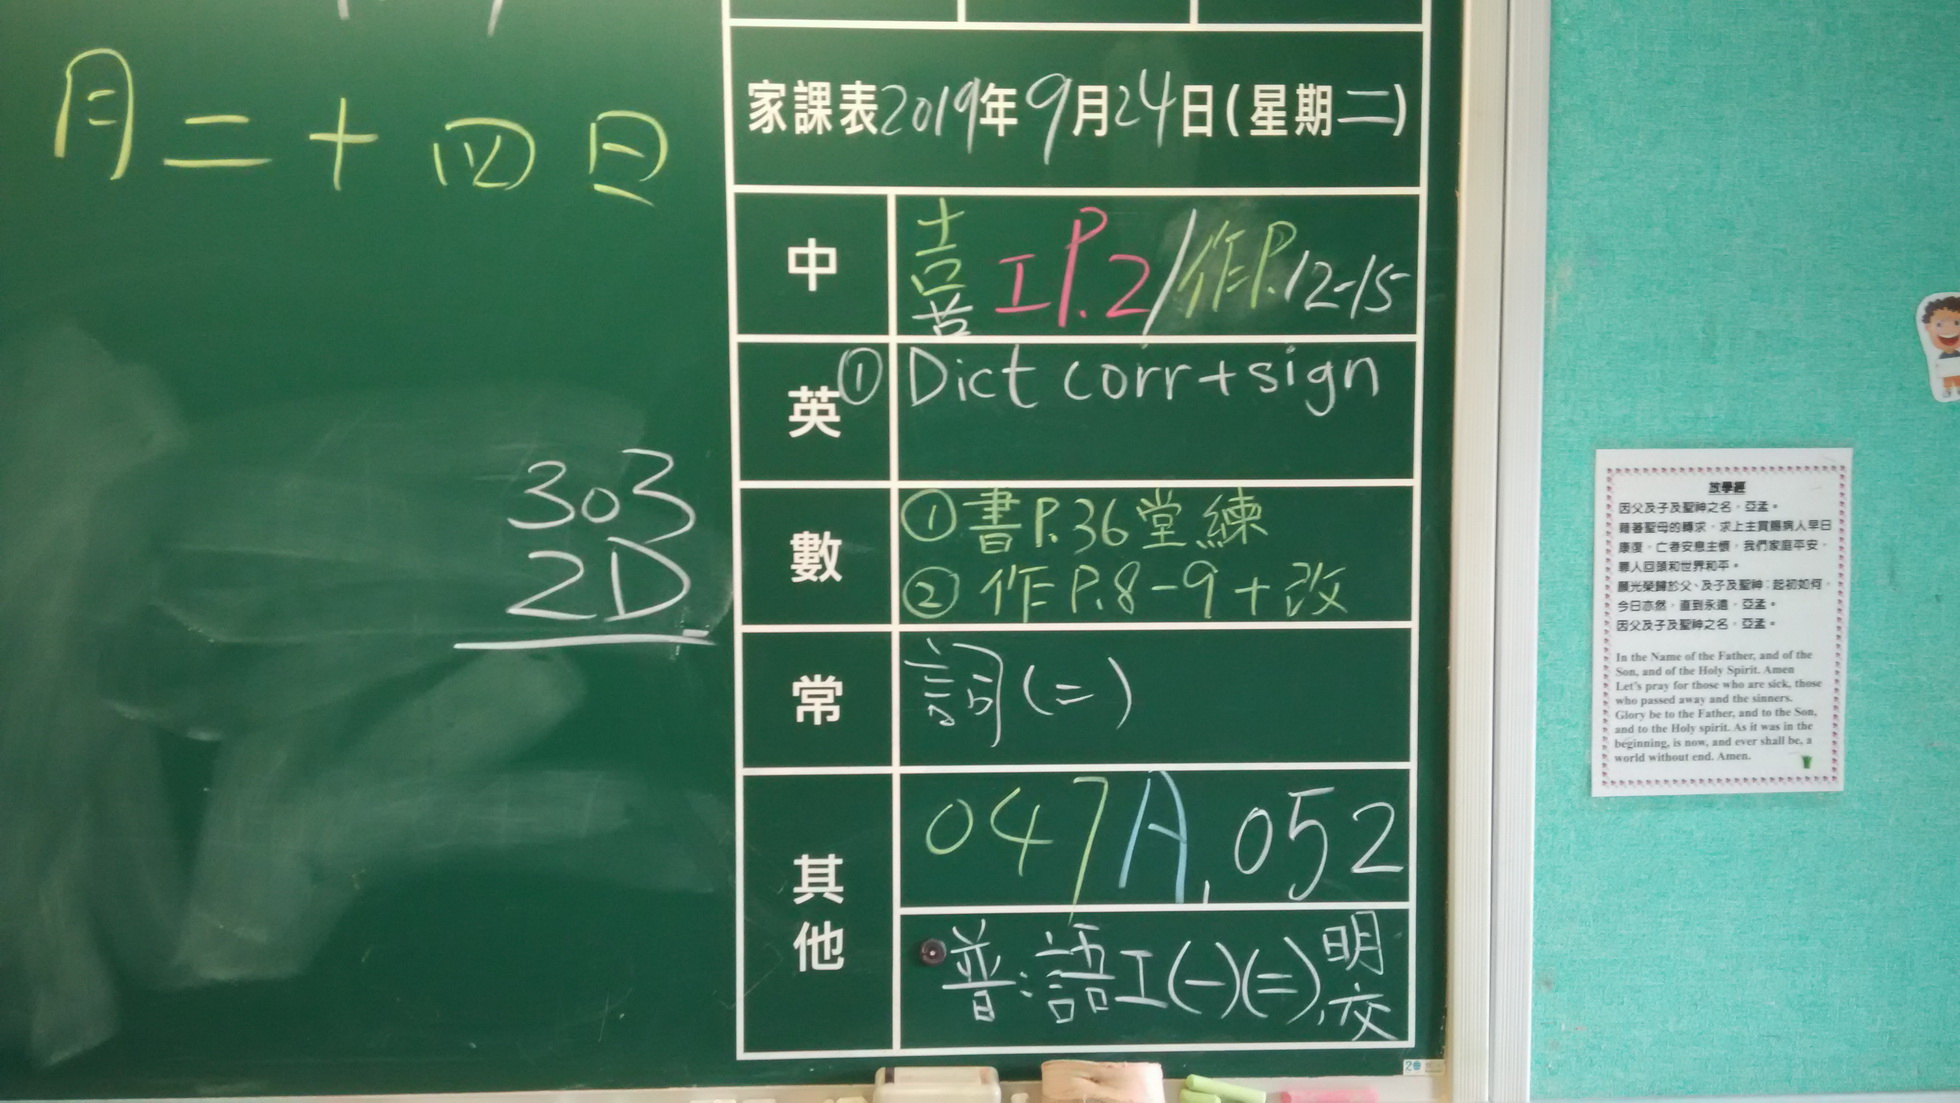 月二十四日
303
2D
家課表2019年9月24日(星期二)
中
工P.2/作P.12-15
英
① Dict corr+sign
數
①書P.36堂練
②作P.8-9+改
常
詞(二)
其他
047A,052
普:語工(一)(二),明交
放學經
因父及子及聖神之名，亞孟。
藉著聖母的轉求，求上主賞賜病人早日
康復，亡者安息主懷，我們家庭平安，
罪人回頭和世界和平。
願光榮歸於父、及子及聖神；起初如何，
今日亦然，直到永遠，亞孟。
因父及子及聖神之名，亞孟。
In the Name of the Father, and of the
Son, and of the Holy Spirit. Amen
Let's pray for those who are sick, those
who passed away and the sinners.
Glory be to the Father, and to the Son,
and to the Holy spirit. As it was in the
beginning, is now, and ever shall be, a
world without end. Amen.